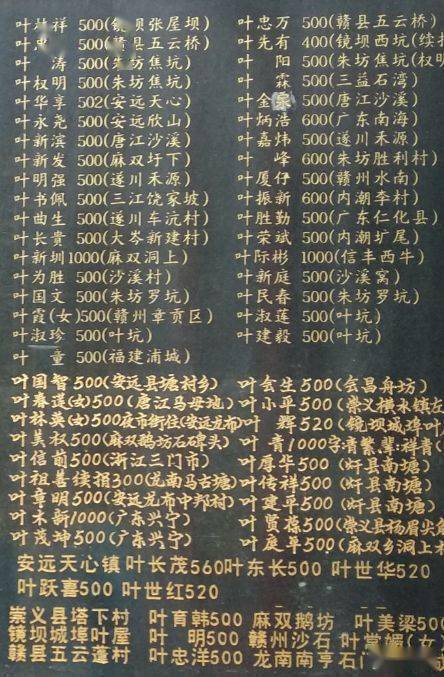 叶 祥 500(镜坝张屋坝) 叶忠万 500(赣县五云桥)
叶 500( 县五云桥) 叶先有 400(镜坝西坑)(续
叶 涛 500(朱坊焦坑) 叶 阳 500(朱坊焦坑)(权明
叶权明 500(朱坊焦坑) 叶 霖 500(三益石湾)
叶华享 502(安远天心) 叶金 500(唐江沙溪)
叶永尧 500(安远欣山) 叶炳浩 600(广东南海)
叶新滨 500(唐江沙溪) 叶嘉炜 500(遂川禾源)
叶新发 500(麻双圩下) 叶 峰 600(朱坊胜利村)
叶明强 500(遂川禾源) 叶厦伢 500(赣州水南)
叶书佩 500(三江饶家坡) 叶振新 600(内潮李村)
叶曲生 500(遂川车沆村) 叶胜勤 500(广东仁化县)
叶长貴 500(大岑新建村) 叶荣斌 500(内潮圹尾)
叶新圳1000(麻双洞上) 叶际彬 1000(信丰西牛)
叶为胜 500(沙溪村) 叶新庭 500(沙溪窝)
叶国文 500(朱坊罗坑) 叶民春 500(朱坊罗坑)
叶霞(女)500(赣州章贡区) 叶淑莲 500(叶坑)
叶淑珍 500(叶坑) 叶建毅 500(叶坑)
叶 童 500(福建浦城)
叶国智500(安远县塘村乡) 叶会生500(会昌舟坊)
叶春莲(女)500(唐江马母地) 叶小平500(崇义横水镇左
叶林英(女)500夜市街住(安远龙布) 叶 辉520(镜坝城埠叶
叶美权500(麻双鹅坊石碑头) 叶 青1000字青繁辈:祥青(
叶信前500(浙江三门市) 叶厚华500(赣县南塘)
叶祖善续捐300(龙南马古塘) 叶传祥500(赣县南塘)
叶章明500(安远龙布中邦村) 叶建平500(赣县南塘)
叶木新1000(广东兴宁) 叶贾蓓500(崇义县杨眉尖
叶茂坤500(广东兴宁) 叶庭平500(麻双乡洞上
安远天心镇 叶长茂560叶东长500 叶世华520
叶跃喜500 叶世红520
崇义县塔下村 叶育韩500 麻双鹅坊 叶美梁500
镜坝城埠叶屋 叶 明500 赣州沙石 叶 媚(女
赣县五云蓬村 叶忠洋500 龙南南亨石